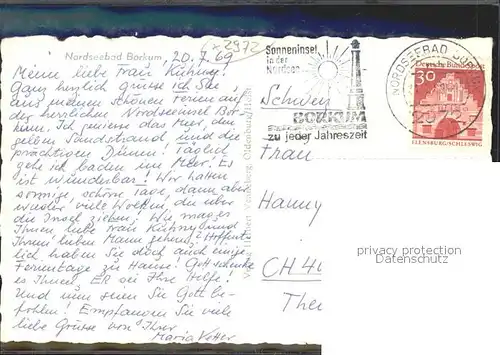 Nordseebad Borkum, 20.7.69
Meine liebe Frau Kühny!
Ganz herzlich grüsse ich Sie
aus meinen schönen Ferien auf
der herrlichen Nordseeinsel Bor-
kum. Ich geniesse das Meer, den
gelben Sandstrand und die
prächtigen Dünen. Täglich
gehe ich baden im Meer. Es
ist wunderbar! Wir hatten
sonnige, schöne Tage, dann aber
wieder viele Wolken, die über
die Insel ziehen! Wie mag es
Ihnen liebe Frau Kühny und
Ihrem lieben Mann gehen? Hoffent-
lich haben Sie doch auch einige
Ferientage zu Hause! Gott schenke
es Ihnen, ER sei Ihre Hilfe!
Und nun seien Sie Gott be-
fohlen! Empfangen Sie viele
liebe Grüsse von Ihrer
Maria
x 2972
Sonneninsel
in der
Nordsee
BORKUM
zu jeder Jahreszeit
NORDSEEBAD BORKUM
2972
Deutsche Bundespost
30
FLENSBURG/SCHLESWIG
Oldenburg
Schweiz
Frau
Hanny
CH 4
The
privacy protection
watermark